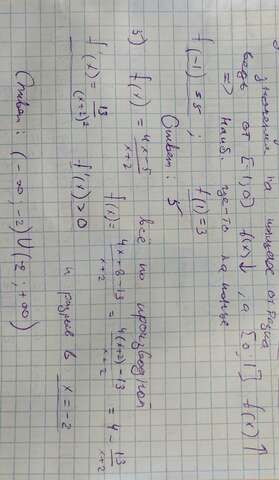 значения на концах отрезка
ведь от [-1;0) f(x)↓, а [0;1] f(x)↑
=> наиб. где-то на конце
f(-1) = 5 ; f(1) = 3
Ответ: 5
5) f(x) = 4x-5/x+2 всё по производной
f(x) = 4x+8-13/x+2 = 4(x+2)-13/x+2 = 4 - 13/x+2
f'(x) = 13/(x+2)² f'(x) > 0 и разрыв в x = -2
Ответ: (-∞;-2)∪(-2;+∞)